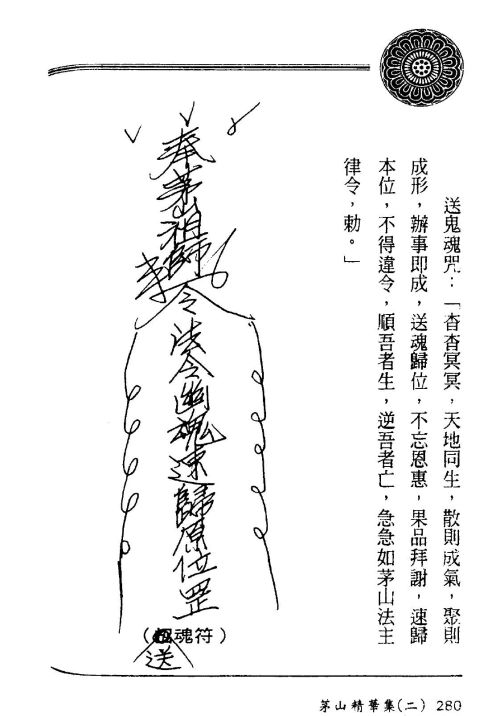 送鬼魂咒：「杳杳冥冥，天地同生，散則成氣，聚則
成形，辦事即成，送魂歸位，不忘恩惠，果品拜謝，速歸
本位，不得違令，順吾者生，逆吾者亡，急急如茅山法主
律令，勅。」
奉茅山祖師令法令幽魂速歸原位罡
（魂符）
送
茅山精華集(二) 280